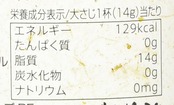 栄養成分表示/大さじ1杯(14g)当たり
エネルギー 129kcal
たんぱく質 0g
脂質 14g
炭水化物 0g
ナトリウム 0mg